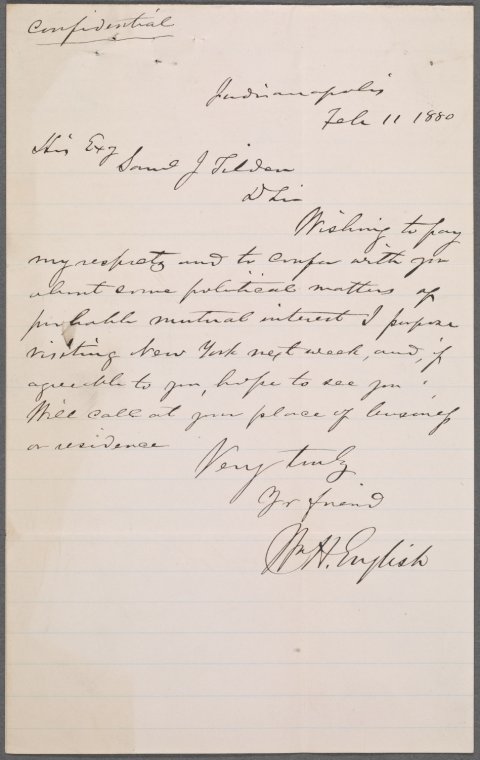 Confidential
Indianapolis
Feb 11 1880
His Exy
Saml J Tilden
D Sir
Wishing to pay
my respects and to confer with you
about some political matters of
probable mutual interest I purpose
visiting New York next week, and, if
agreeable to you, hope to see you.
Will call at your place of business
or residence
Very truly
Yr friend
Wm H. English